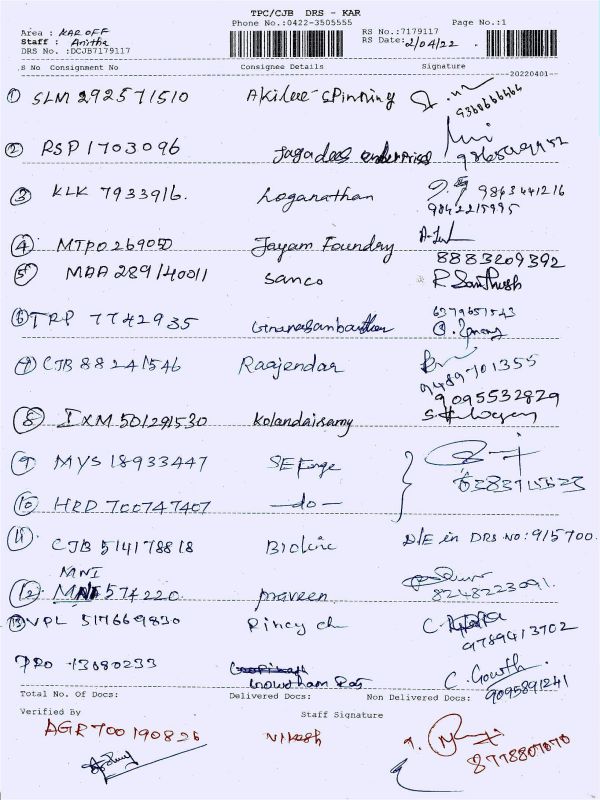 TPC/CJB DRS - KAR
Phone No.:0422-3505555 Page No.:1
Area : KAR OFF RS No.:7179117
Staff : Anitha RS Date: 2/04/22
DRS No. :DCJB7179117
S No Consignment No Consignee Details Signature
--20220401--
1 SLM 292571510 Akilee Spinning 9368666666
2 RSP 1703096 Jagadees enterprises
3 KLK 7933916. Loganathan 9863441216
9842215995
4 MTP0269050 Jayam Foundry
8883209392
5 MAA 289140011 Sanco R. Santhosh
6 TRP 7742935 Gnanasambanthan 6379651543
7 CJB 88241546 Raajendar 9489701355
9095532829
8 IXM 501291530 Kolandaisamy
9 MYS 18933447 SE Forge
10 HRD 700747407 -do- 6383715523
11 CJB 514178818 D/E in DRS NO: 915700.
MNI
12 MNI 574220 praveen 8248223091.
13 VPL 517669830 Rincy ch 9789413702
PRO 13080233 Gowtham Raj C. Gowth.
9095891241
Total No. Of Docs: Delivered Docs: Non Delivered Docs:
Verified By Staff Signature
AGR700190826 Nikesh
8778807070